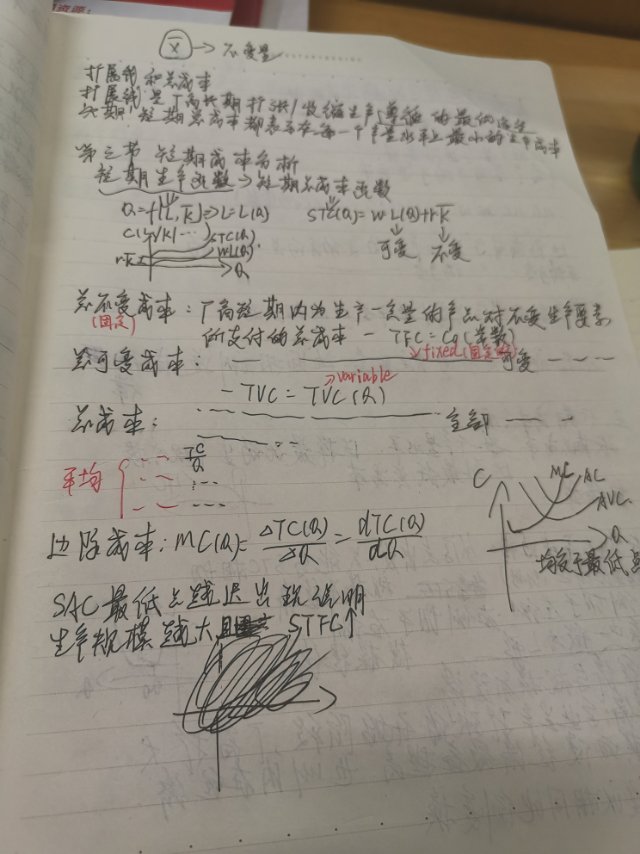 资源:
x̄ → 不变量
扩展线和总成本
扩展线是厂商长期扩张/收缩生产遵循的最优路径
长期/短期总成本都表示在每一个产量水平上最小的生产成本
第三节 短期成本分析
短期生产函数→短期总成本函数
Q=f(L,K̄)⇒L=L(Q) STC(Q)=w·L(Q)+rK̄
可变 不变
C STC(Q)
wL(Q)
rK̄ Q
总不变成本:厂商短期内为生产一定量的产品对不变生产要素
(固定) 所支付的总成本 — TFC=C₀(常数)
→fixed(固定的)
总可变成本: 可变
→variable
— TVC=TVC(Q)
总成本: 全部
平均 TC/Q
边际成本:MC(Q)=ΔTC(Q)/ΔQ=dTC(Q)/dQ
C MC AC
AVC
Q
均交于最低点
SAC最低点越迟出现说明
生产规模越大 STFC↑